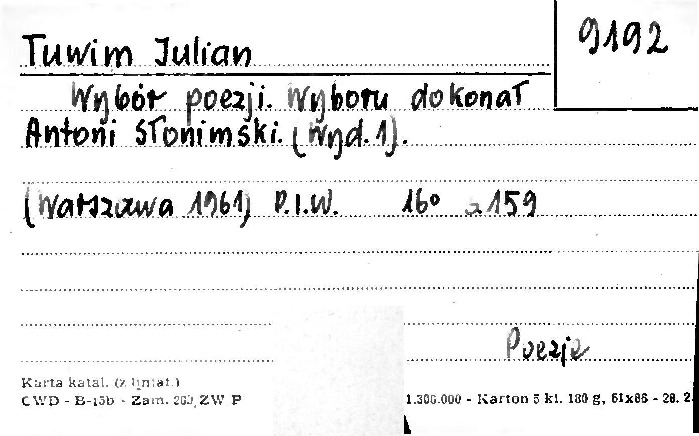 9192
Tuwim Julian
Wybór poezji. Wyboru dokonał
Antoni Słonimski. (Wyd. 1).
(Warszawa 1961) P.I.W. 16° s 159
Poezje
Karta katal. (z liniat.)
CWD - B-15b - Zam. 260, ZW P
1.300.000 - Karton 5 kl. 180 g, 61x86 - 28. 2.